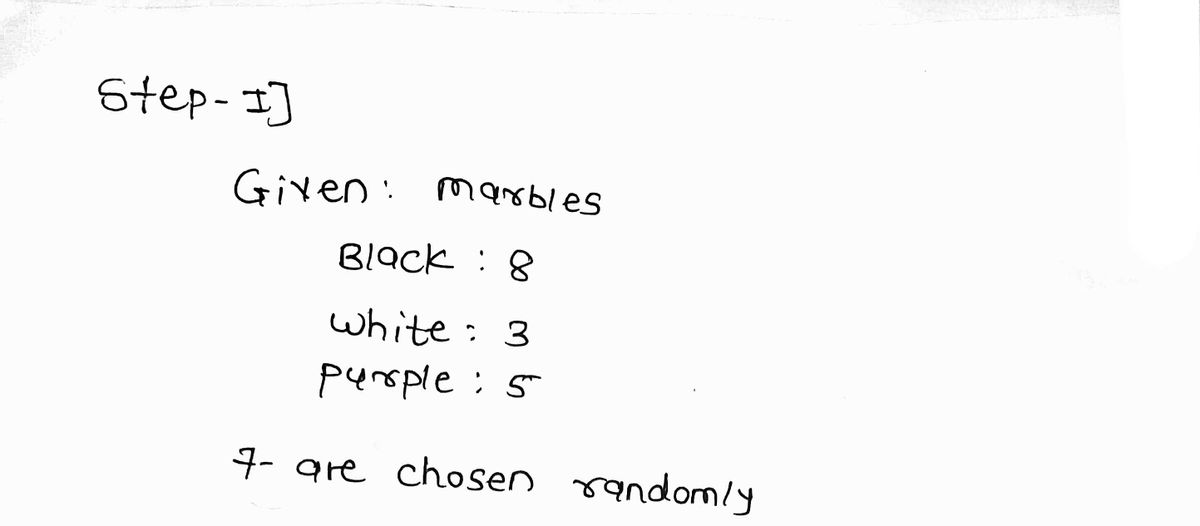 Step-I]
Given: marbles
Black : 8
white : 3
purple : 5
7- are chosen randomly